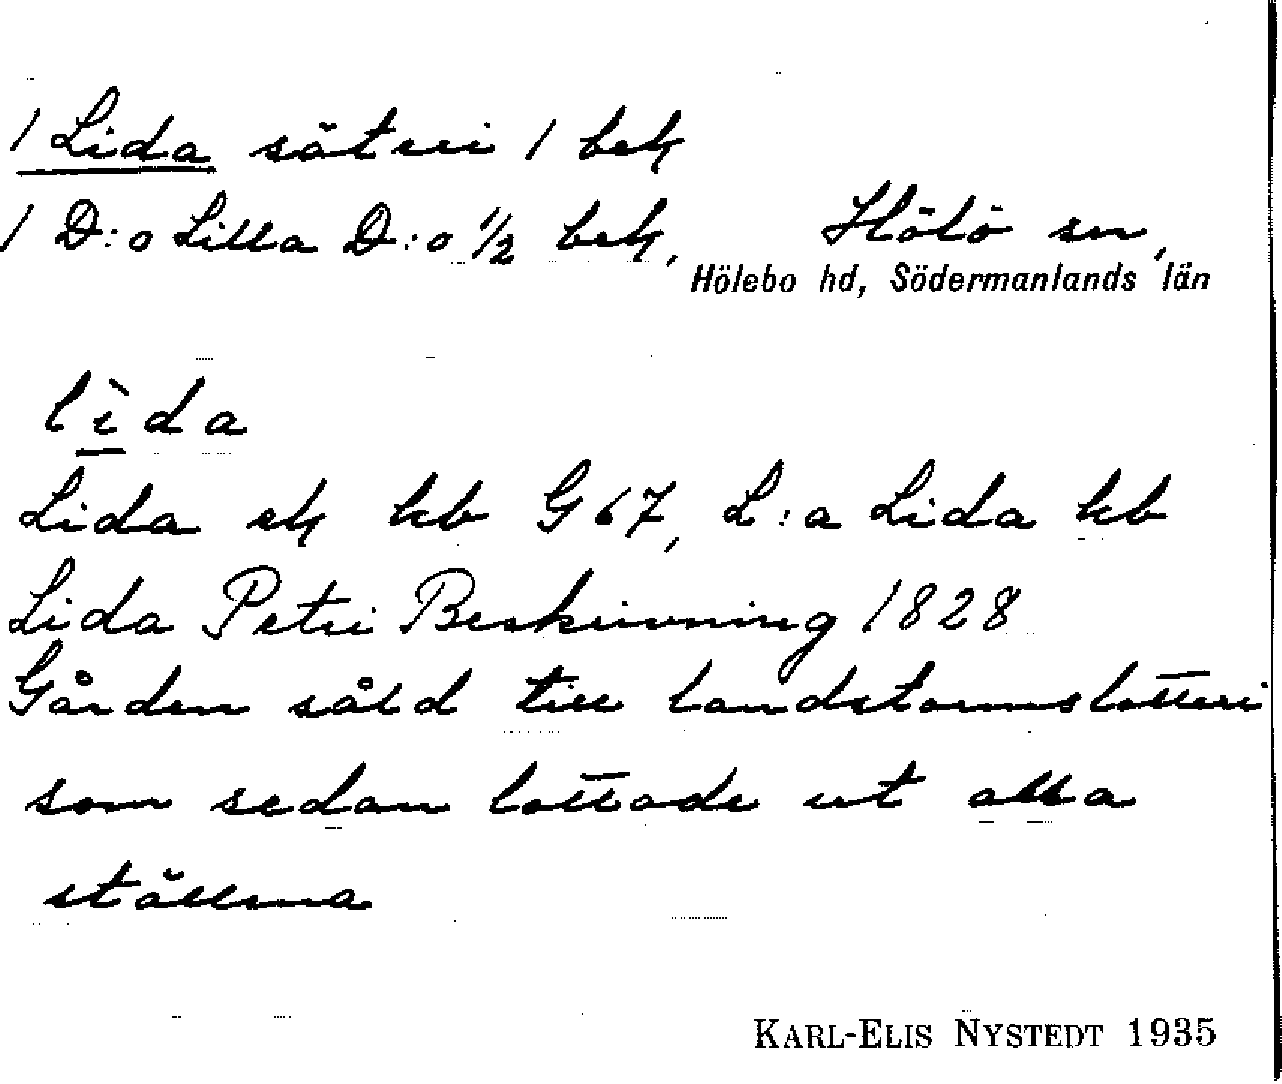 1 Lida säteri 1 bek
1 D:o Lilla D:o 1/2 bek,
Hölö sn,
Hölebo hd, Södermanlands län
lìda
Lida ek hb G 67, L:a Lida hb
Lida Petri Beskrivning 1828
Gården såld till landstormslotteri
som sedan lottade ut alla
ställena
KARL-ELIS NYSTEDT 1935